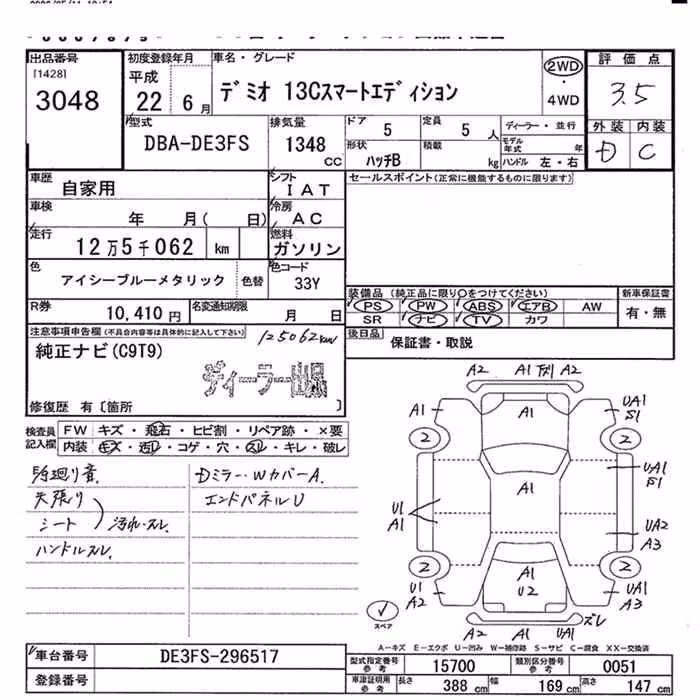 出品番号
[1428]
3048
初度登録年月
平成
22 6月
車名・グレード
デミオ 13Cスマートエディション
2WD
・
4WD
評価点
3.5
外装 内装
D C
型式
DBA-DE3FS
排気量
1348
CC
ドア
5
定員
5 人
形状
ハッチB
積載
kg
ディーラー・並行
モデル年式 年
ハンドル 左・右
車歴
自家用
シフト
IAT
セールスポイント(正常に機能するものに限ります)
車検
年 月( 日)
冷房
AC
走行
12万5千062 km
燃料
ガソリン
色
アイシーブルーメタリック
色替
色コード
33Y
装備品 (純正品に限り○をつけてください)
PS PW ABS エアB AW
SR ナビ TV カワ
新車保証書
有・無
R券
10,410 円
名変通知期限
月 日
後日品
保証書・取説
注意事項申告欄(不具合内容等は具体的に記入して下さい)
125062km
純正ナビ(C9T9)
ディーラー出品
修復歴 有〔箇所 〕
検査員記入欄
FW キズ・飛石・ヒビ割・リペア跡・×要
内装 キズ・汚レ・コゲ・穴・スレ・キレ・破レ
天張り
シート
汚れ・スレ
ハンドルスレ.
Dミラー・WカバーA.
エンドパネルU
A2 A1 A2
A1 A1 UA1
S1
2 2
A1 UA1
S1
A1
U1
A1
UA2
A3
2 2
A1
U2
U1
A2
UA1
A3
スペア
A2 A1 UA1 ズレ
A-キズ E-エクボ U-凹み W-補修跡 S-サビ C-腐食 XX-交換済
車台番号
DE3FS-296517
登録番号
型式指定番号
参考
15700
類別区分番号
参考
0051
車庫証明用
参考
長さ
388 cm
幅
169 cm
高さ
147 cm